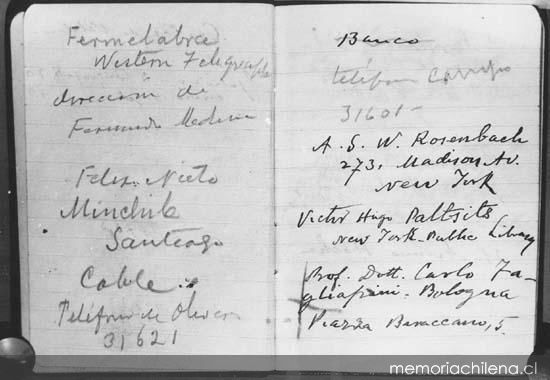 Fermelabra
Western Telegraph
dirección de
Fernando Medina
Felix Nieto
Minchile
Santiago
Cable:
Teléfono de Olivares
31621
Banco
teléfono Campo
31601-
A. S. W. Rosenbach
273, Madison Av.
New York
Victor Hugo Paltsits
New York Public Library
Prof. Dott. Carlo Ta-
gliafini. Bologna
Piazza Baraccano, 5.
memoriachilena.cl